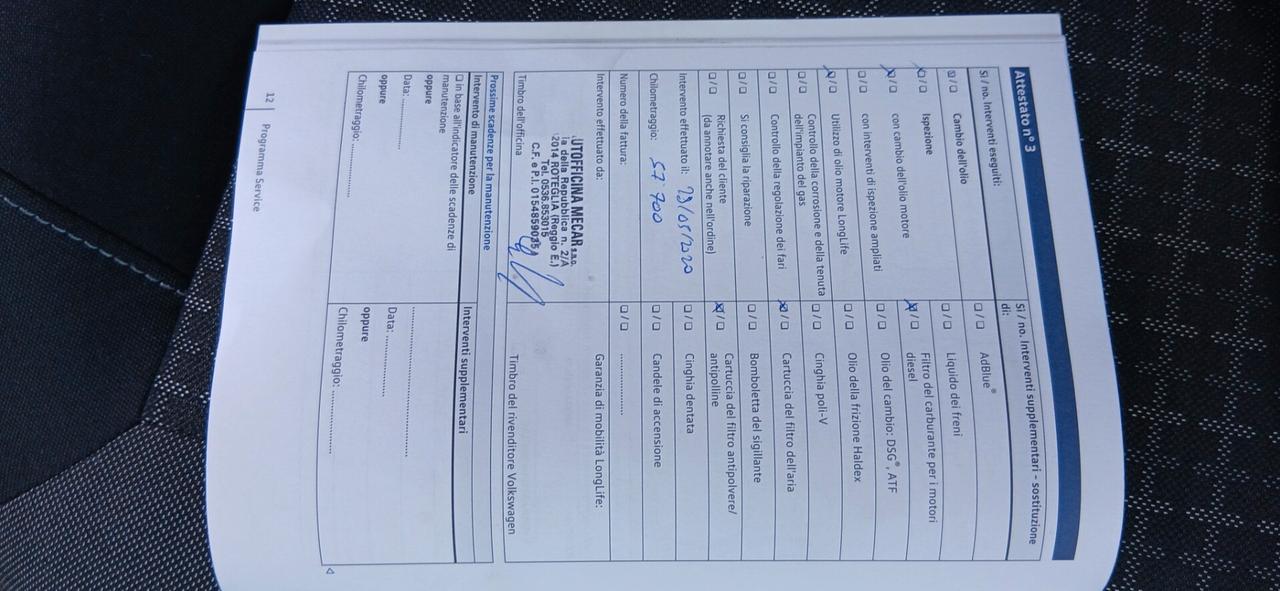 Attestato n° 3
Sì / no. Interventi eseguiti:
☒ / ☐ Cambio dell'olio
☒ / ☐ Ispezione
☒ / ☐ con cambio dell'olio motore
☐ / ☐ con interventi di ispezione ampliati
☒ / ☐ Utilizzo di olio motore LongLife
☐ / ☐ Controllo della corrosione e della tenuta
dell'impianto del gas
☐ / ☐ Controllo della regolazione dei fari
☐ / ☐ Si consiglia la riparazione
☐ / ☐ Richiesta del cliente
(da annotare anche nell'ordine)
Intervento effettuato il: 29/05/2020
Chilometraggio: 57.700
Numero della fattura:
Intervento effettuato da:
UTOFFICINA MECAR s.n.c.
ia della Repubblica n. 2/A
2014 ROTEGLIA (Reggio E.)
Tel. 0536.853015
C.F. e P.I.
Timbro dell'officina
Sì / no. Interventi supplementari - sostituzione
di:
☐ / ☐ AdBlue®
☐ / ☐ Liquido dei freni
☒ / ☐ Filtro del carburante per i motori
diesel
☐ / ☐ Olio del cambio: DSG®, ATF
☐ / ☐ Olio della frizione Haldex
☐ / ☐ Cinghia poli-V
☒ / ☐ Cartuccia del filtro dell'aria
☐ / ☐ Bomboletta del sigillante
☒ / ☐ Cartuccia del filtro antipolvere/
antipolline
☐ / ☐ Cinghia dentata
☐ / ☐ Candele di accensione
☐ / ☐ ................
Garanzia di mobilità LongLife:
Timbro del rivenditore Volkswagen
Prossime scadenze per la manutenzione
Intervento di manutenzione
☐ In base all'indicatore delle scadenze di
manutenzione
oppure
Data: ................
oppure
Chilometraggio: ................
Interventi supplementari
................
Data: ................
oppure
Chilometraggio: ................
12 | Programma Service